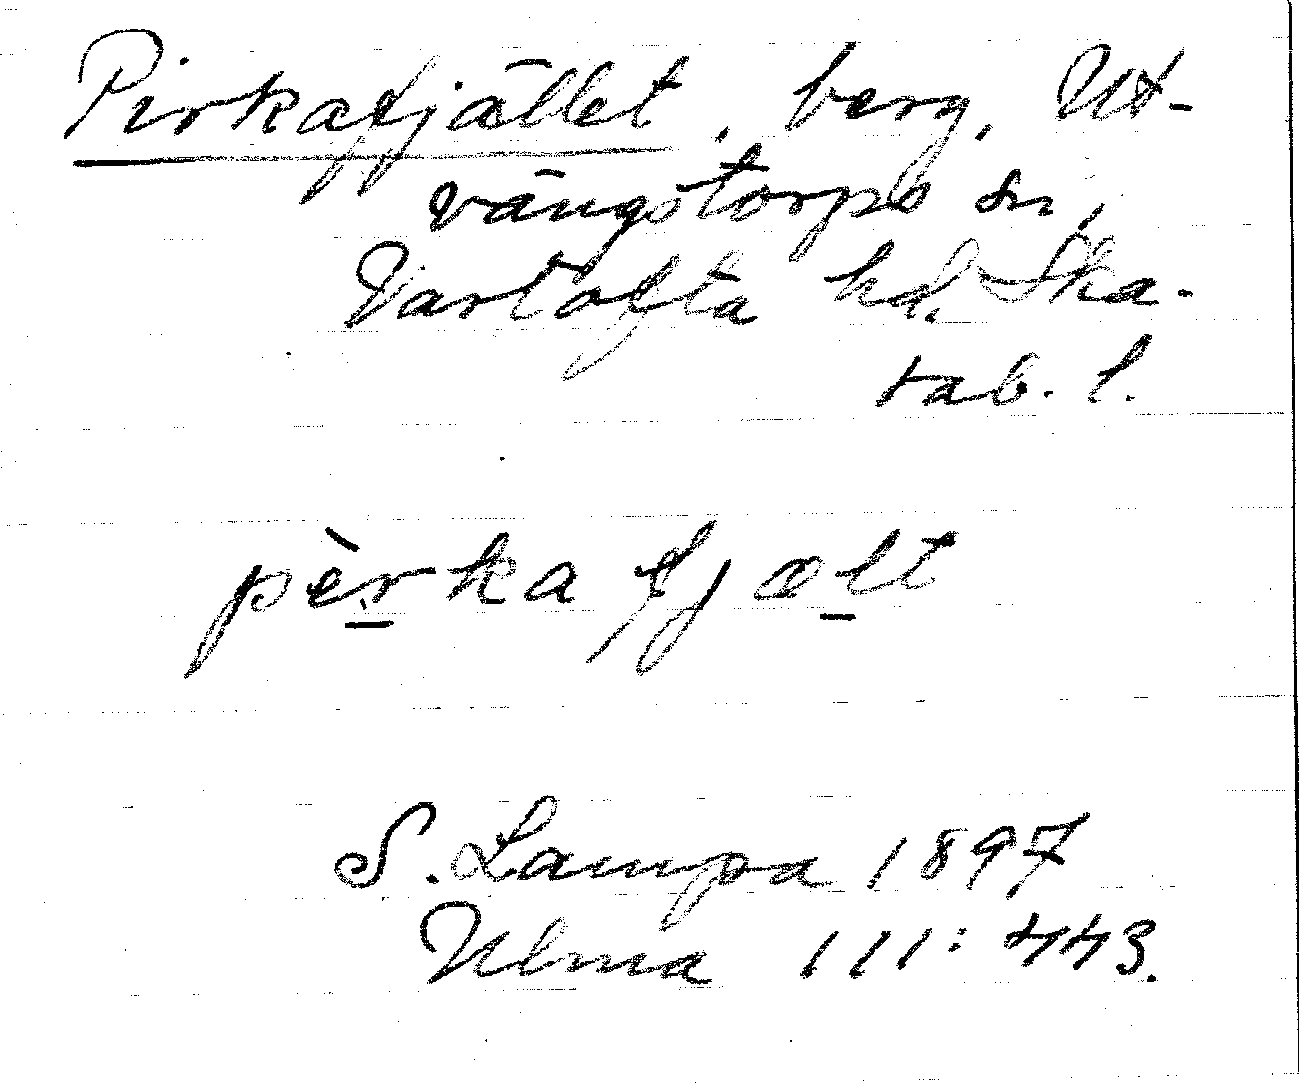 Pirkafjället, berg, Ut-
vängstorps sn,
Vartofta hd. Ska-
rab. l.
pèrka fjælt
S. Lampa 1897
Ulma 111:443.